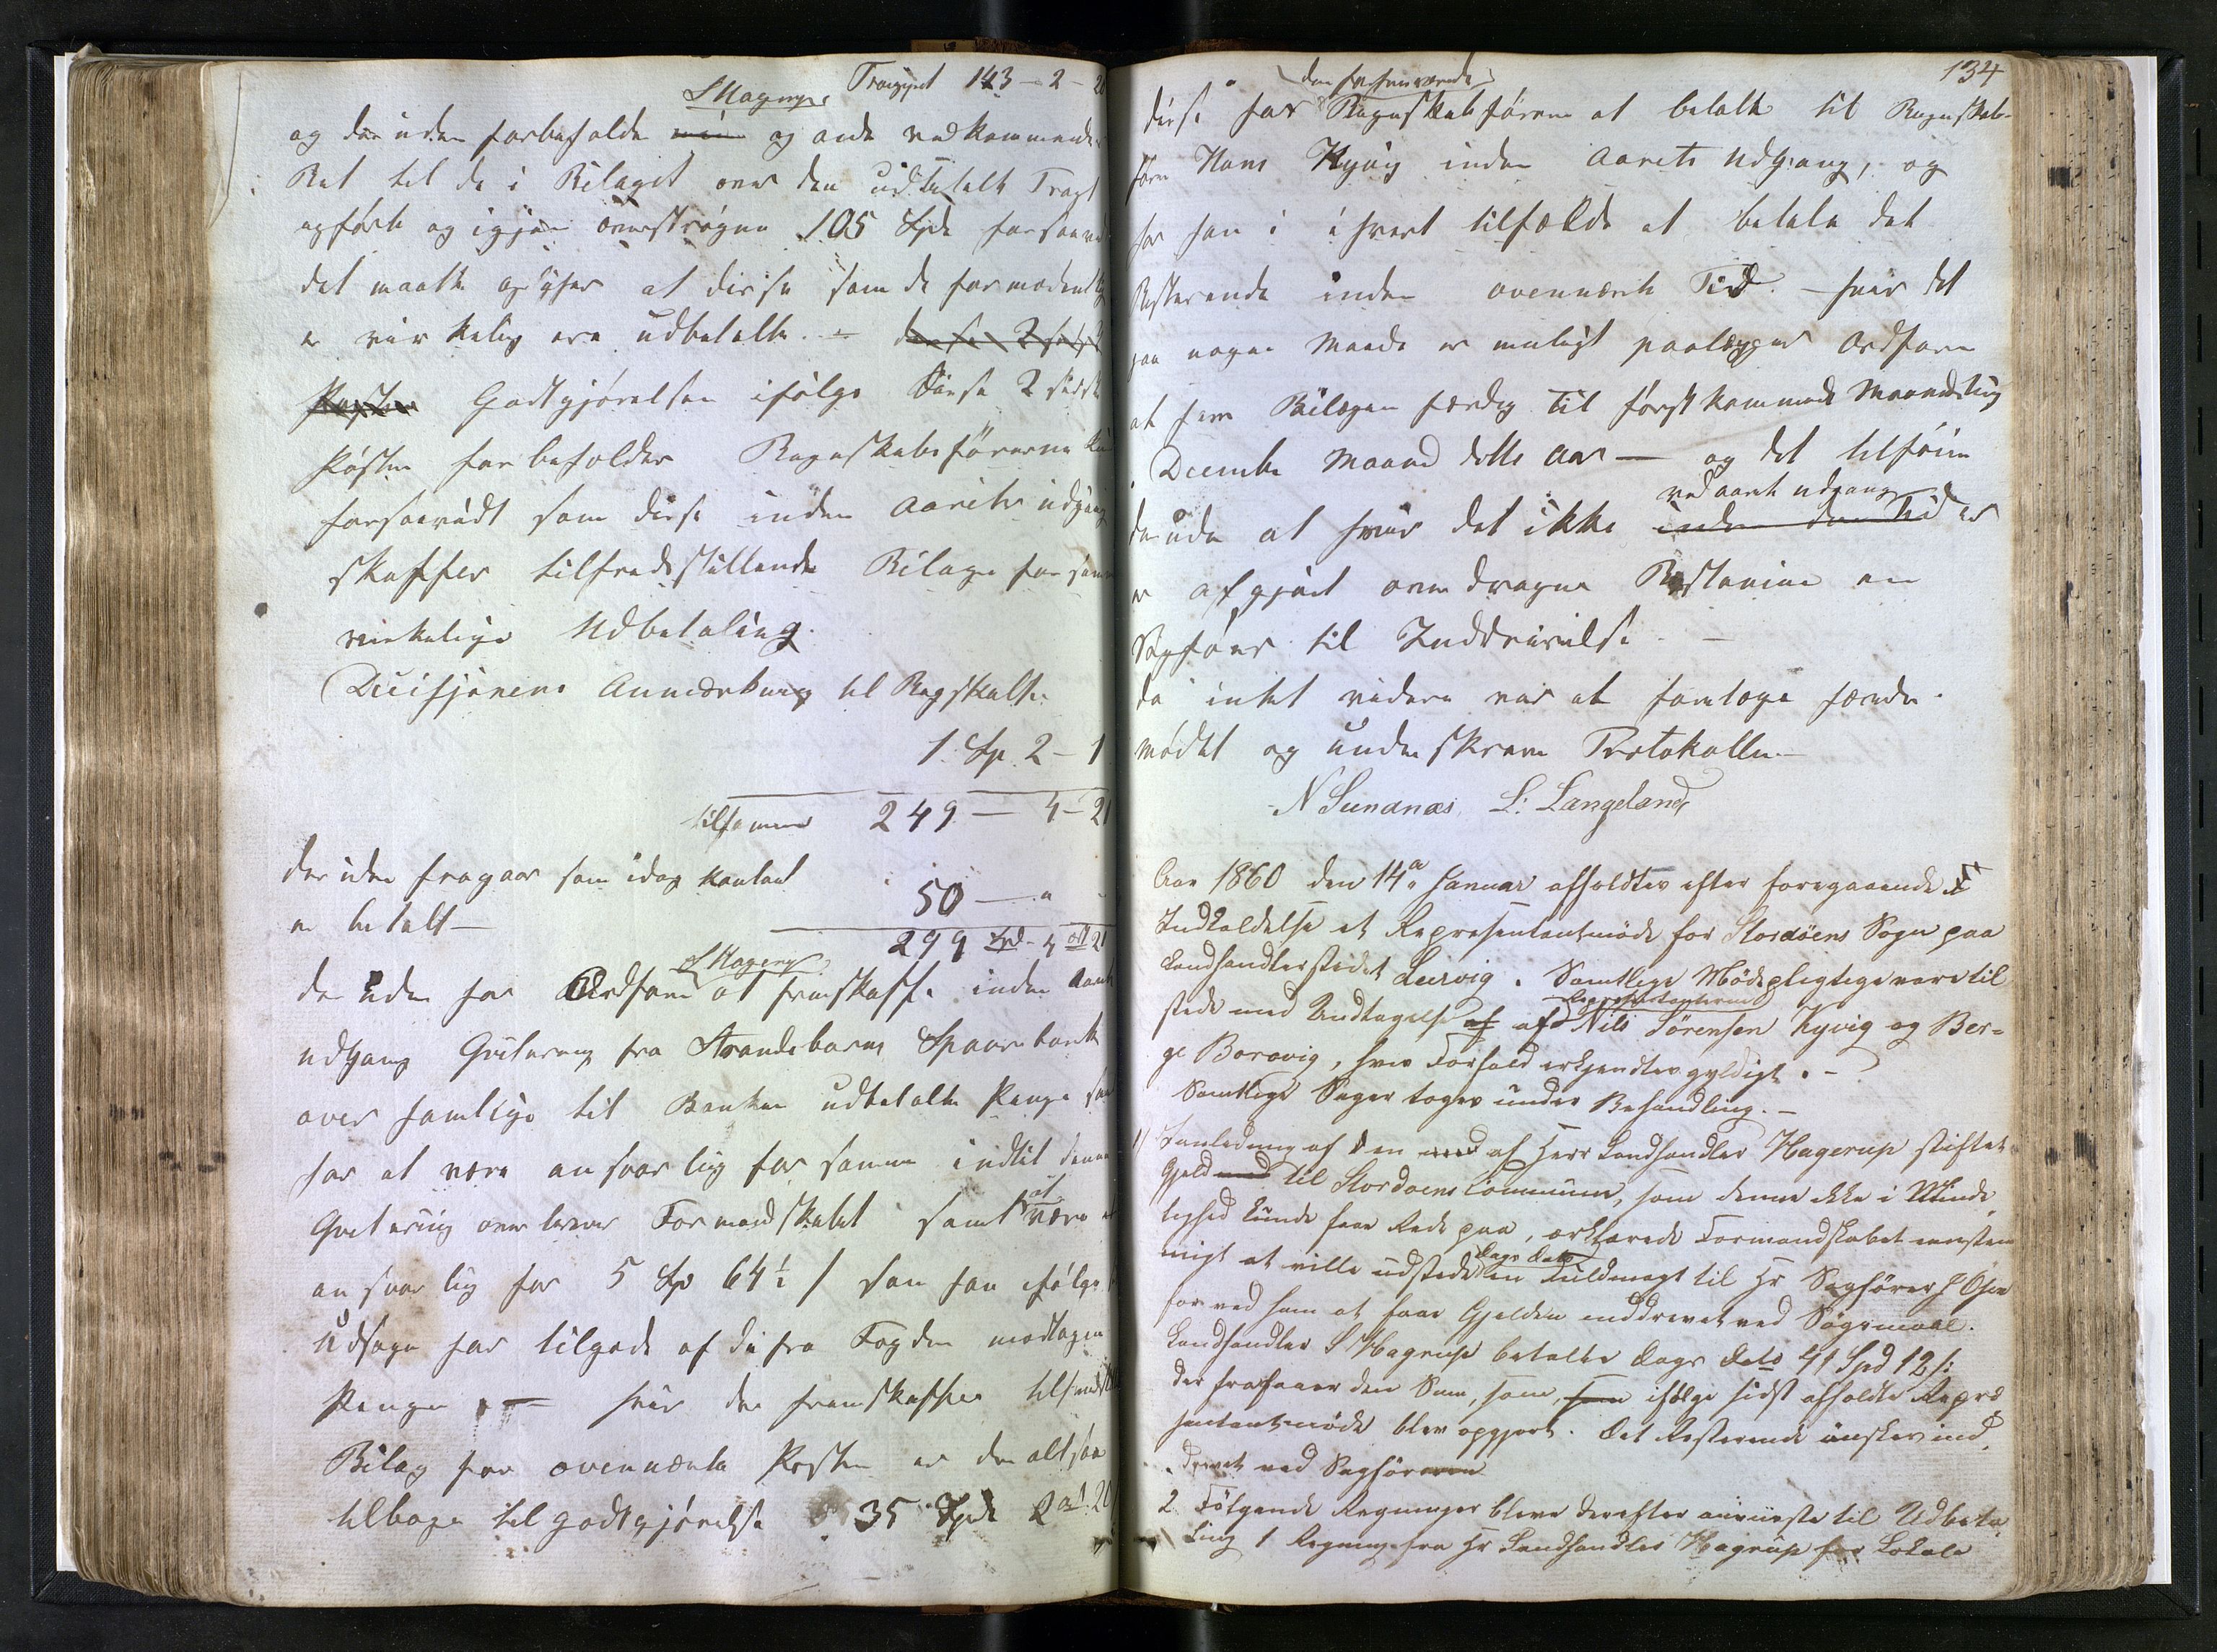 Transport 143 - 2 - 20
S Hagerup
og desuden forbeholde og ande vedkommende
Ret til de i Bilaget over den udbetalte Fragt
opførte og igjen overstrøgne 105 Spd forsaavidt
det maatte opgjøres at disse som de formodentlig
er virkelig ere udbetalte. –
Godtgjørelsen ifølge disse 2 sidste
Poster forbeholdes Regnskabsførerne kun
forsaavidt som disse inden Aarets udgang
skaffer tilfredsstillende Bilage for
virkelige Udbetaling.
Decisjonens Anmærkning til Regskabet.
1. Sp. 2 - 1
tilsammen 249 - 4 - 21
der uden fragaar som idag kontant
er betalt – 50 –
299 Spd 4 ort 21
S Hagerup
des uden har Ordføren at fremskaffe inden Aarets
udgang Qvitering fra Strandebarms Spaarebank
over samtlige til Banken udbetalte Penge som
har at være ansvarlig for samme indtil denne
Qvitering overleveres Formandskabet samt at være
ansvarlig for 5 Sp 64½ s som han ifølge
Udsagn har tilgode af de fra Fogden modtagne
Penge – hvis der fremskaffes tilfredsst
Bilag for ovennævnte Poster er der altsaa
tilbage til godtgjørelse 35 Spd 2 ort 20
134
den forhenværende
disse har Regnskabsføreren at betale til Regnskabs-
fører Hans Kyvig inden Aarets Udgang, og
har han i ethvert tilfælde at betale det
Resterende inden ovennævnte Tid. – hvis det
paa nogen Maade er muligt paalægges Ordføren
at have Bilagene færdig til førstkommende Maanedsting
i December Maaned dette Aar – og det tilføies
ved aarets udgang
desuden at hvis det ikke inden den tid er
er afgjort overdrages Restancen en
Sagfører til Inddrivelse. –
da intet videre var at foretage hævedes
mødet og underskreven Protokollen –
N Sunanæs. L: Langeland
Aar 1860 den 14de Januar afholdtes efter foregaaende
Indkaldelse et Repræsentantmøde for Stordøens Sogn paa
Landhandlerstedet Leirvig. Samtlige Mødepligtige vare til
Repræsentanterne
stede med Undtagelse af af Nils Sørensen Kyvig og Ber-
ge Borovig, hvis Forfald erkjendtes gyldigt. –
Samtlige Sager toges under Behandling. –
1) I anledning af den af Herr Landhandler Hagerup stiftet
Gjeld til Stordøens Commune, som denne ikke i Minde
lighed kunde faae Rede paa, erklærede Formandskabet eenstem
Dags Dato
migt at ville udstede en Fuldmagt til Hr Sagfører
for ved ham at faae Gjelden inddrevet ved Søgsmaal.
Landhandler S Hagerup betalte Dags Dato 41 Spd 12 s:
der fragaaer den Sum, som, som ifølge sidst afholdte Repræ
sentantmøde blev opgjort. Det Resterende ønskes ind
drevet ved Sagføreren
2. Følgende Regninger bleve derefter anviiste til Udbeta
ling 1 Regning fra Hr Landhandler Hagerup for Lokale